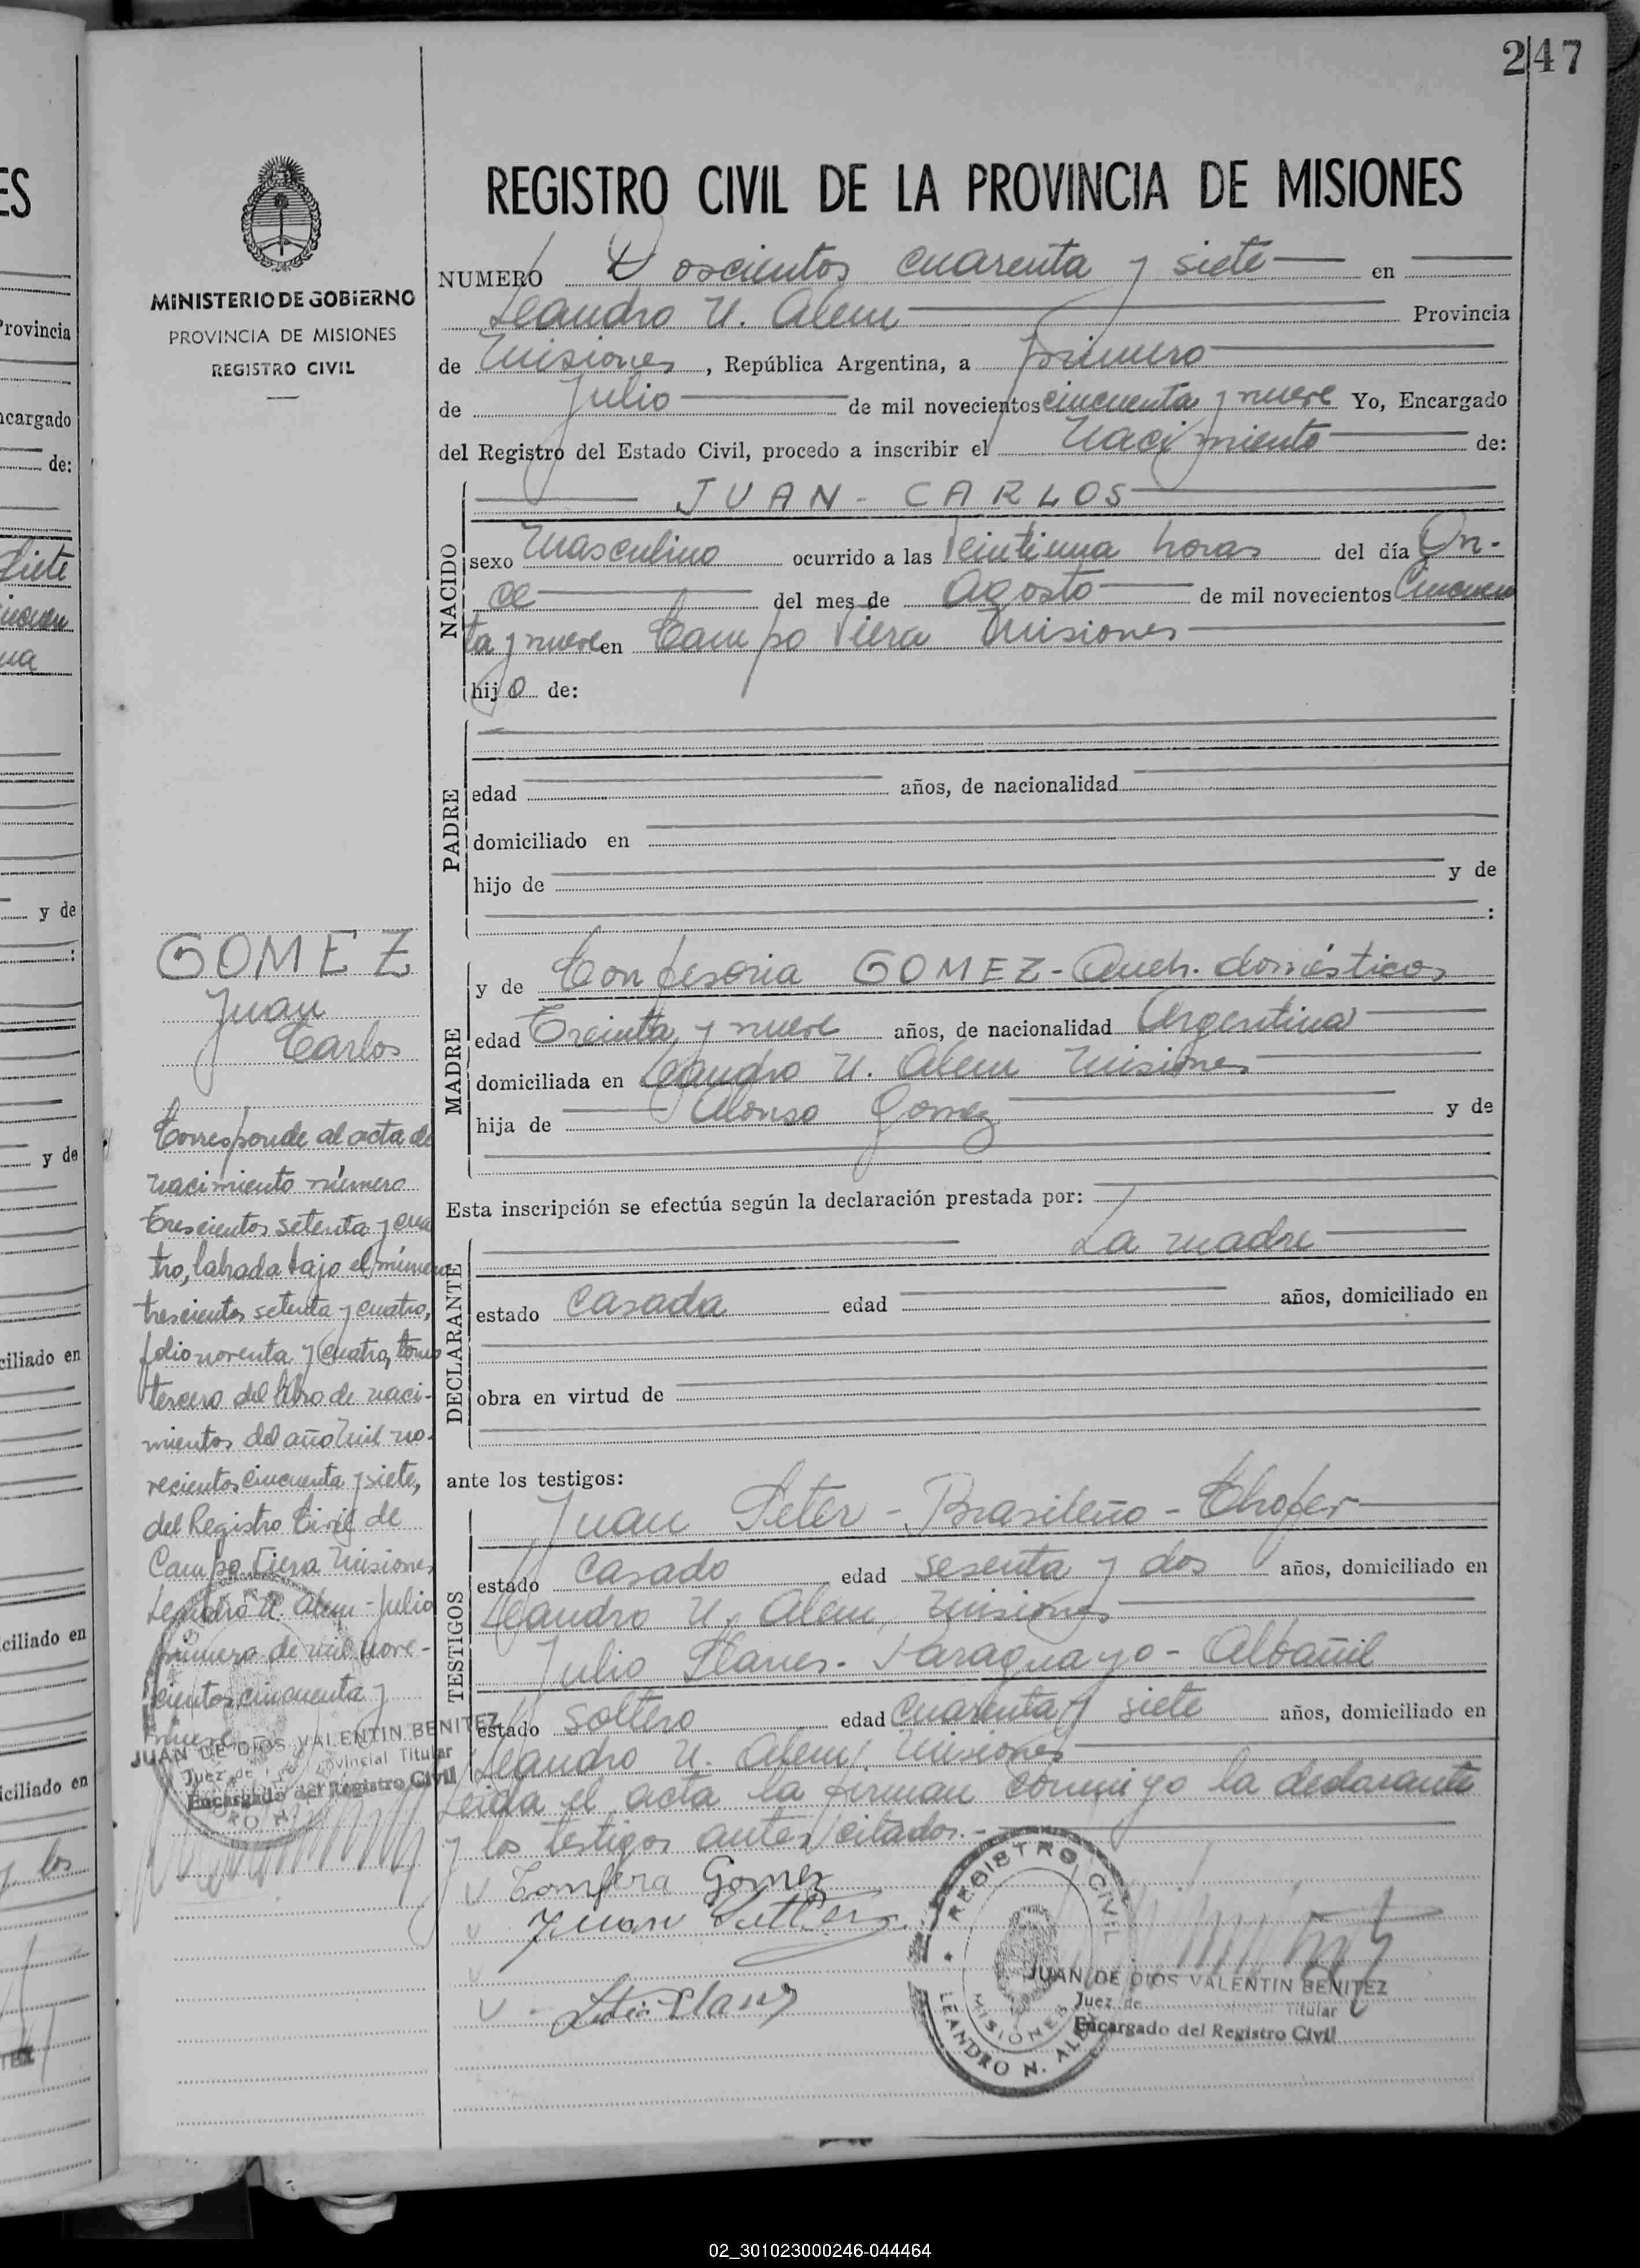 247
MINISTERIO DE GOBIERNO
PROVINCIA DE MISIONES
REGISTRO CIVIL
REGISTRO CIVIL DE LA PROVINCIA DE MISIONES
NUMERO Doscientos cuarenta y siete en
Leandro N. Alem Provincia
de Misiones, República Argentina, a primero
de Julio de mil novecientos cincuenta y nueve Yo, Encargado
del Registro del Estado Civil, procedo a inscribir el Nacimiento de:
NACIDO
JUAN - CARLOS
sexo Masculino ocurrido a las Veintiuna horas del día On-
ce del mes de Agosto de mil novecientos Cincuen
ta y nueve en Campo Viera Misiones
hijo de:
PADRE
edad años, de nacionalidad
domiciliado en
hijo de y de
:
MADRE
y de Confesoria GOMEZ - Queh. domésticos
edad Treinta y nueve años, de nacionalidad Argentina
domiciliada en Leandro N. Alem Misiones
hija de Alonso Gomez y de
Esta inscripción se efectúa según la declaración prestada por:
DECLARANTE
La madre
estado Casada edad años, domiciliado en
obra en virtud de
ante los testigos:
TESTIGOS
Juan Peter - Brasileño - Chofer
estado Casado edad sesenta y dos años, domiciliado en
Leandro N. Alem, Misiones
Julio Llanes - Paraguayo - Albañil
estado Soltero edad Cuarenta y siete años, domiciliado en
Leandro N. Alem, Misiones
Leida el acta la firman conmigo la declarante
y los testigos antes citados.-
Gomez
Juan
REGISTRO CIVIL
MISIONES
LEANDRO N. ALEM
JUAN DE DIOS VALENTIN BENITEZ
Juez de Titular
Encargado del Registro Civil
GOMEZ
Juan
Carlos
Corresponde al acta de
nacimiento número
trescientos setenta y cua
tro, labrada bajo el número
trescientos setenta y cuatro,
folio noventa y cuatro, tomo
tercero del libro de naci-
mientos del año mil no-
vecientos cincuenta y siete,
del Registro Civil de
Campo Viera Misiones
Leandro N. Alem - Julio
primero de mil nove-
cientos cincuenta y
nueve
JUAN DE DIOS VALENTIN BENITEZ
Juez de Provincial Titular
Encargado del Registro Civil
02_301023000246-044464